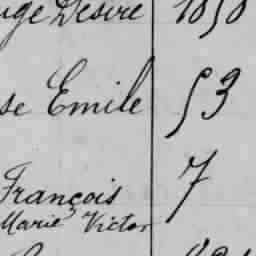 Désiré 1850
se Emile 53
François 7
Marie Victor